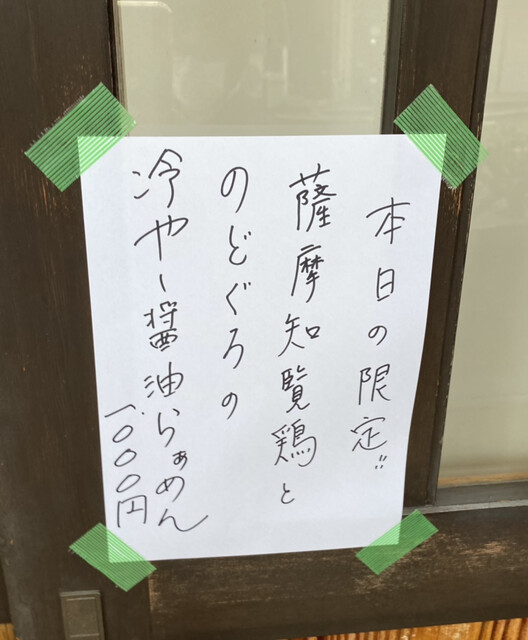 本日の限定!!
薩摩知覧鶏と
のどぐろの
冷や〜醤油らぁめん
一、〇〇〇円